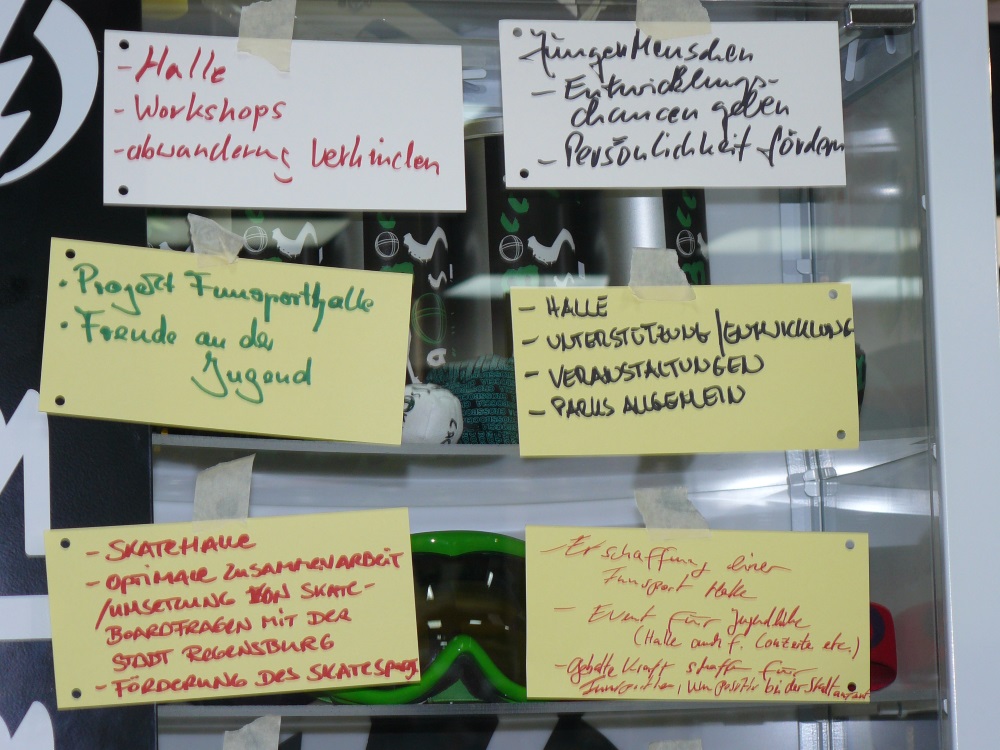 - Halle
- Workshops
- abwanderung verhindern
Jungen Menschen
- Entwicklungs-
chancen geben
- Persönlichkeit fördern
· Projekt Funsporthalle
· Freude an der
Jugend
- HALLE
- UNTERSTÜTZUNG/ENTWICKLUNG
- VERANSTALTUNGEN
- PARKS ALLGEMEIN
- SKATEHALLE
- OPTIMALE ZUSAMMENARBEIT
/UMSETZUNG VON SKATE-
BOARDFRAGEN MIT DER
STADT REGENSBURG
- FÖRDERUNG DES SKATESPORTS
- Erschaffung einer
Funsport Halle
- Event für Jugendliche
(Halle auch f. Konzerte etc.)
- geballte Kraft schaffen für
Funsportler, um positiv bei der Stadt